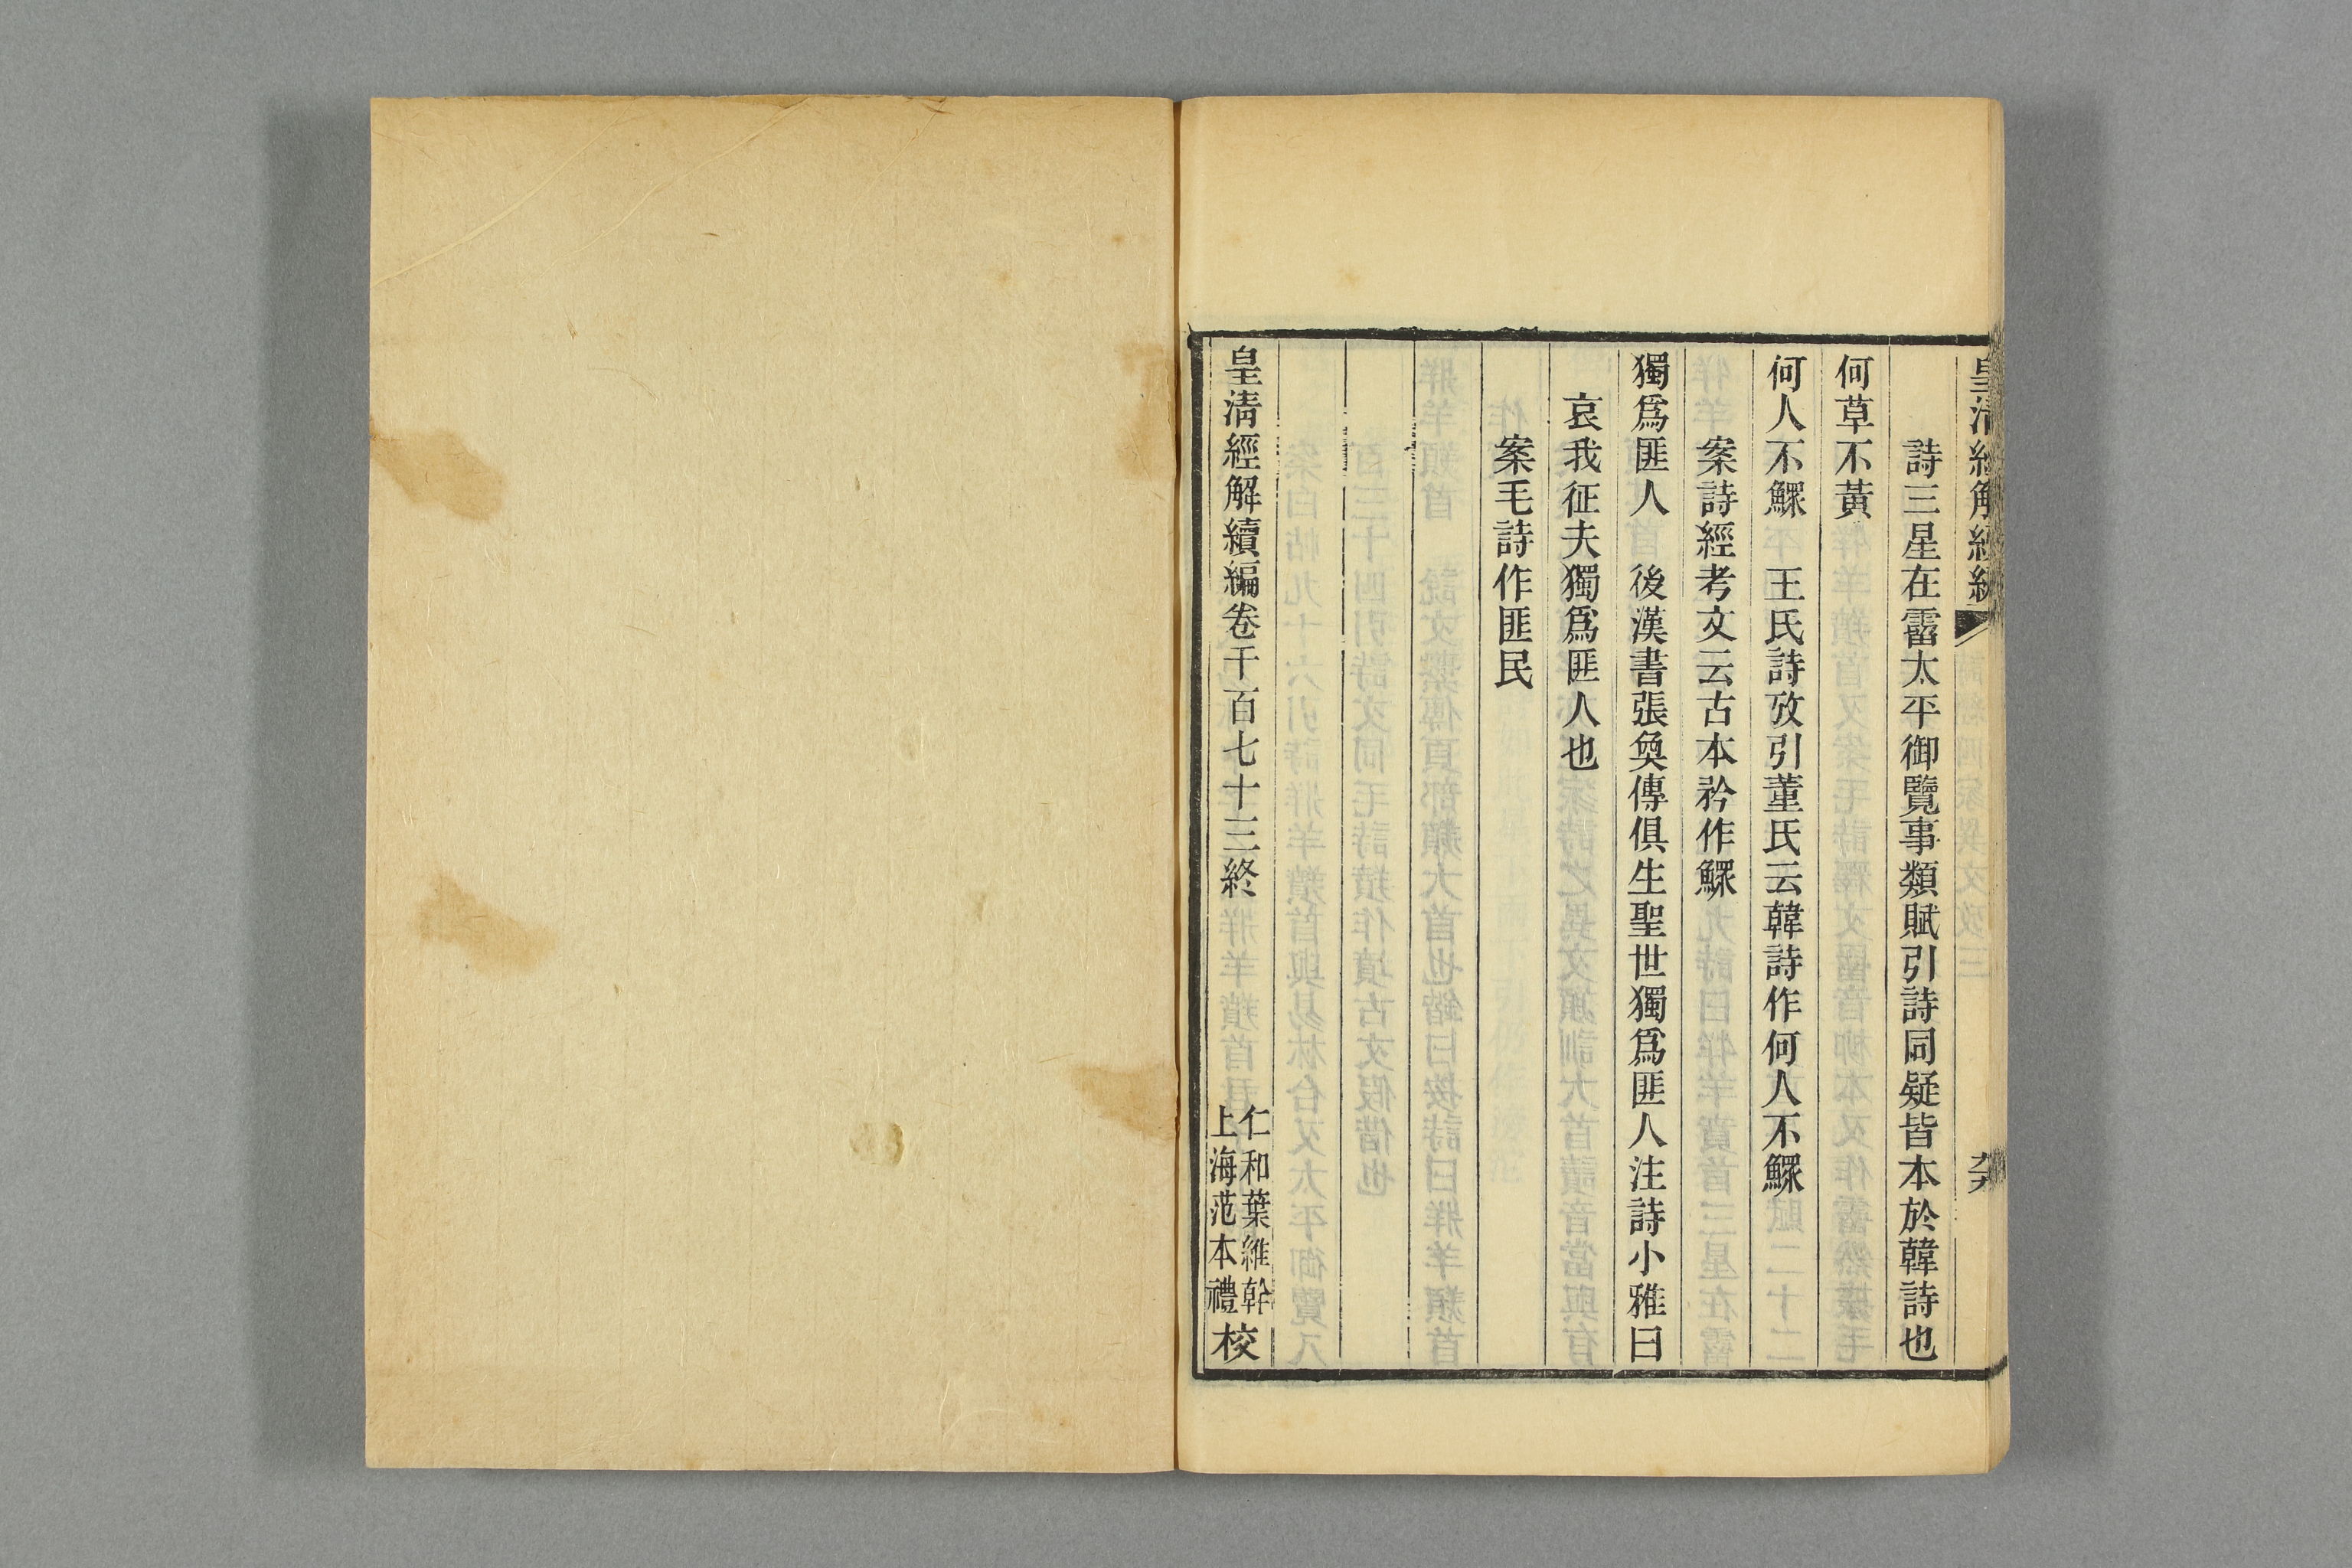 皇清經解續編
詩三星在霤太平御覽事類賦引詩同疑皆本於韓詩也
何草不黃
何人不鰥　王氏詩攷引董氏云韓詩作何人不鰥
案詩經考文云古本矜作鰥
獨爲匪人　後漢書張奐傳俱生聖世獨爲匪人注詩小雅曰
哀我征夫獨爲匪人也
案毛詩作匪民
皇清經解續編卷千百七十三終
仁和葉維幹
上海范本禮
校